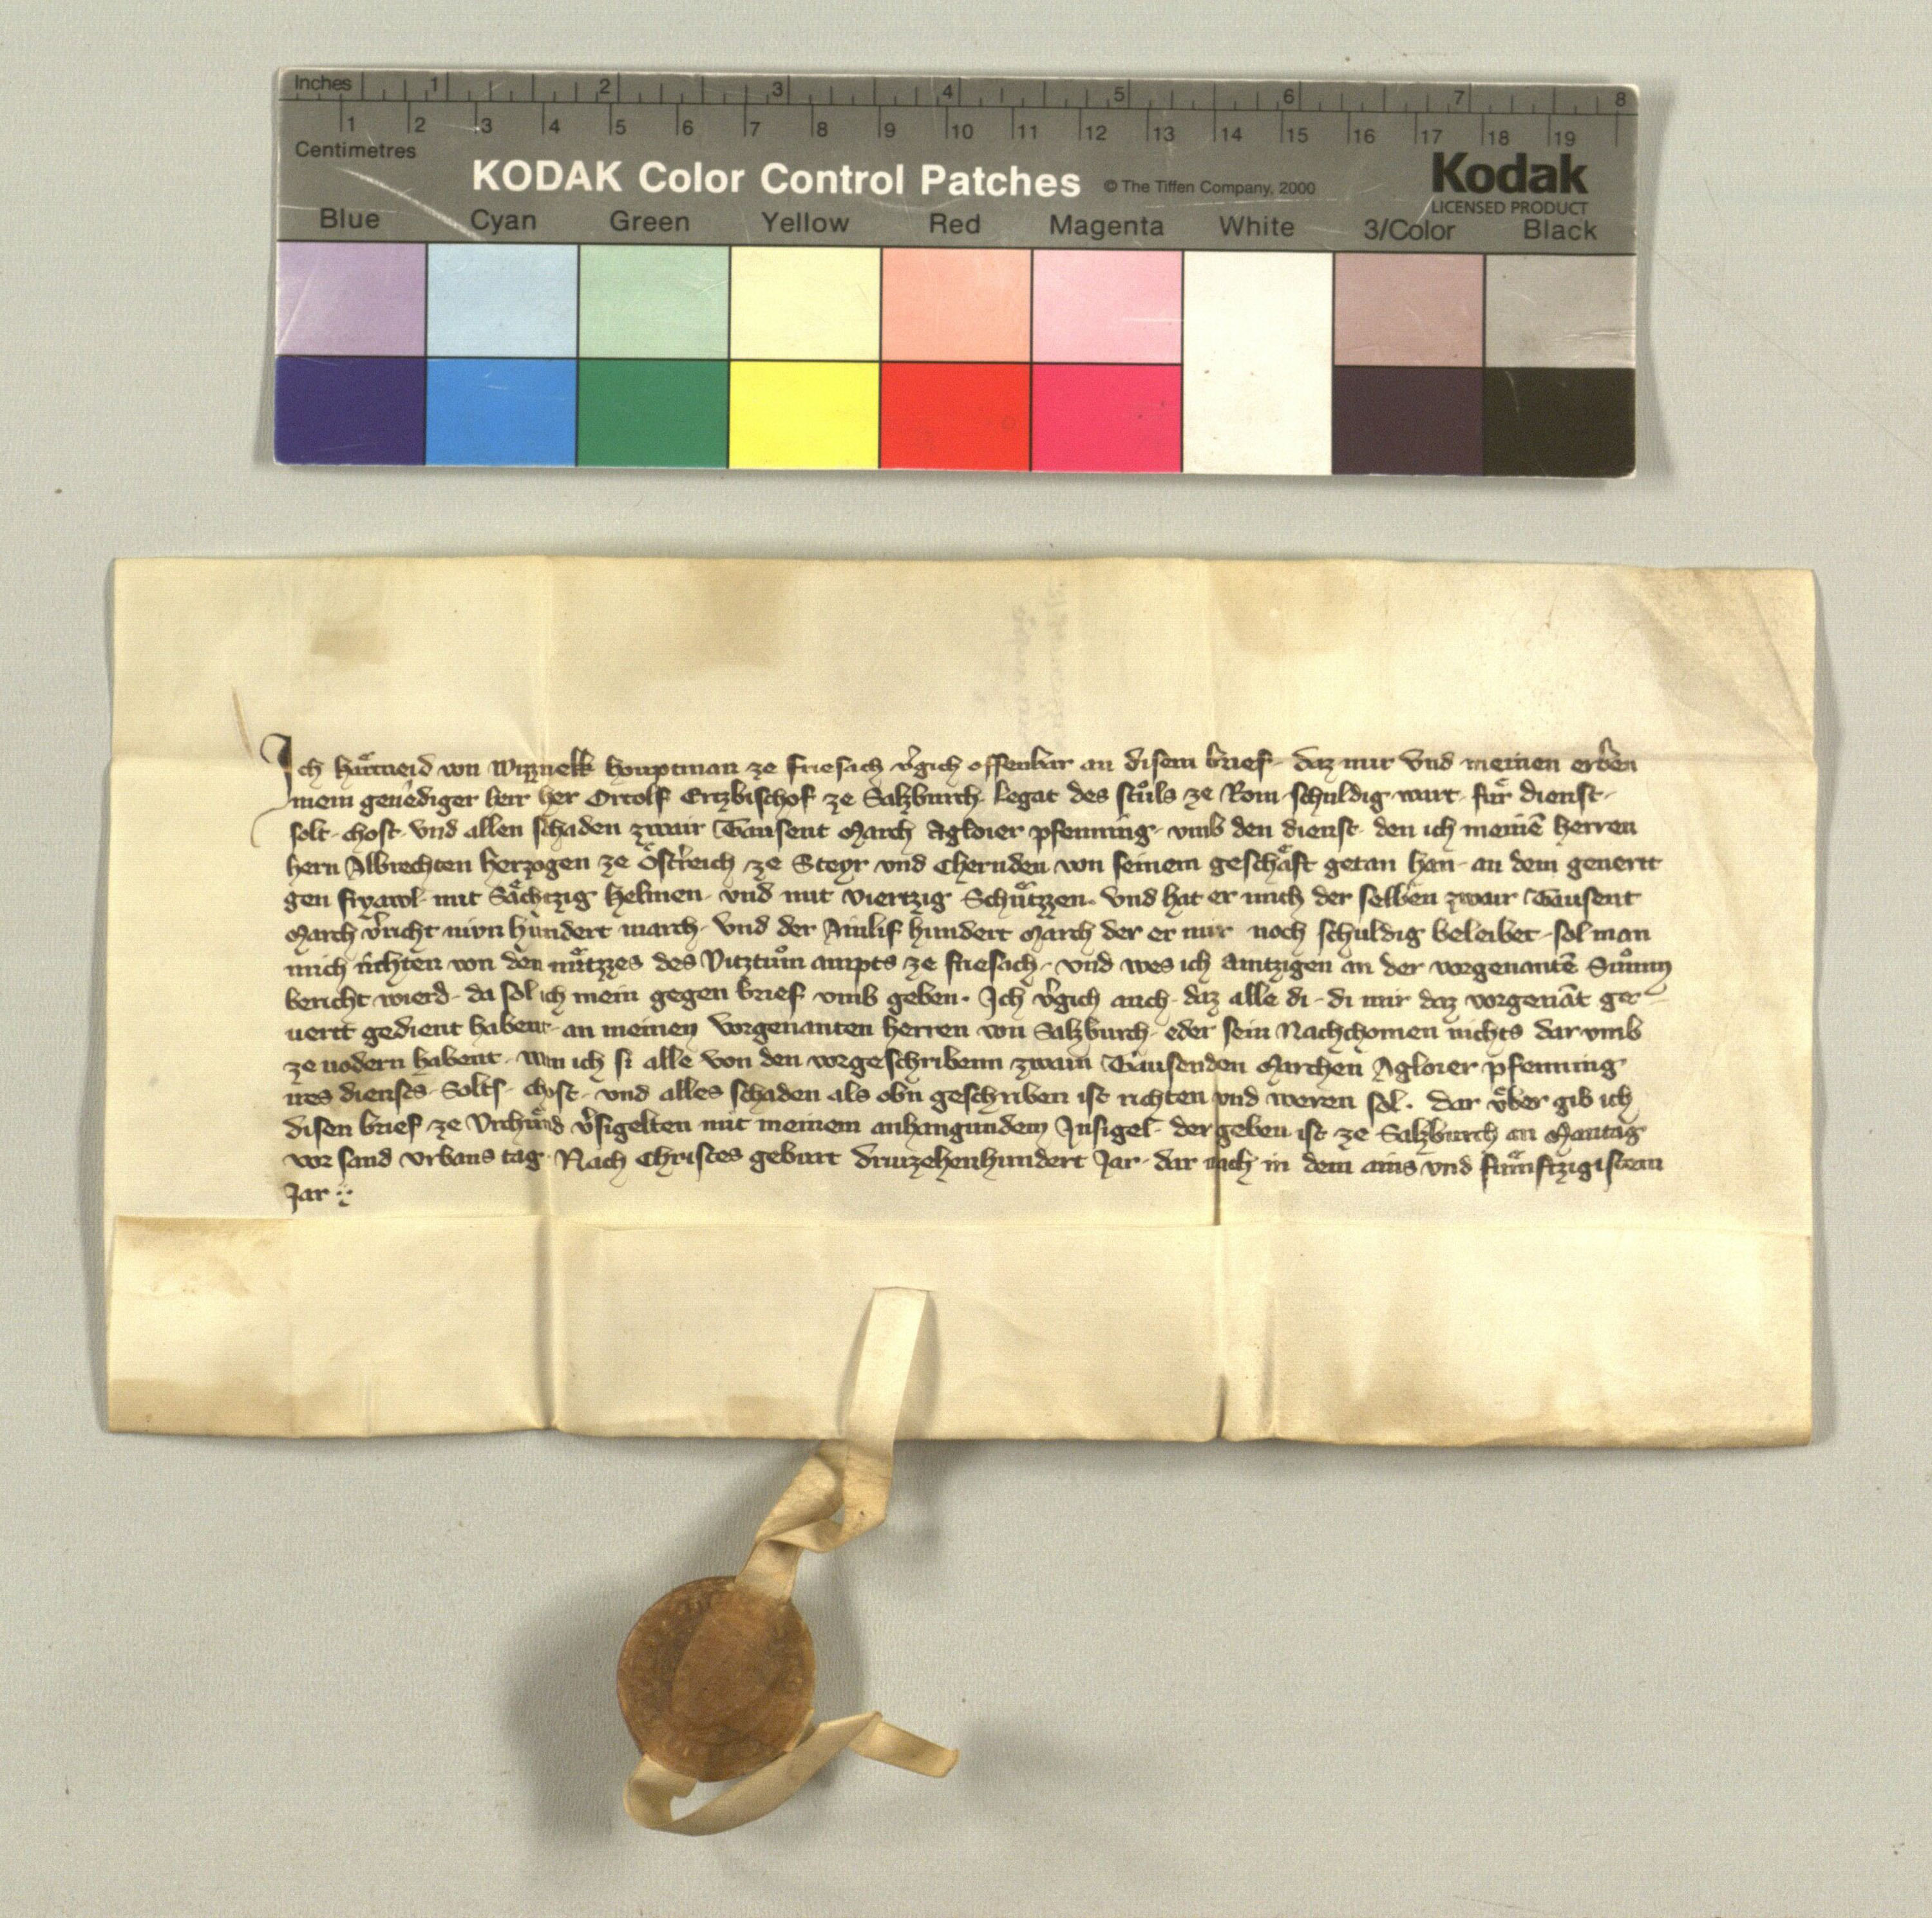 Inches 1 2 3 4 5 6 7 8
1 2 3 4 5 6 7 8 9 10 11 12 13 14 15 16 17 18 19
Centimetres
KODAK Color Control Patches © The Tiffen Company, 2000 Kodak
LICENSED PRODUCT
Blue Cyan Green Yellow Red Magenta White 3/Color Black
Ich Haͤrtneid von Wizznekk houptman ze friesach v̓gich offenbar an disem brief · daz mir vnd meinen erb̓en
mein genediger herr her Ortolf Ertzbischof ze Salzburch legat des stuͦls ze Rom schuldig wart · fuͤr dienst ·
solt · chost · vnd allen schaden zwair Tausent March Agloier pfenning · vmb den dienst · den ich meinē herren
hern Albrechten herzogen ze Oͤst̓reich ze Steyr vnd Chernden von seinem geschaͤft getan han · an dem geuertt
gen fryawl · mit Saͤchtzig helmen · vnd mit viertzig Schuͤtzzen · vnd hat er mich der selben zwair Tausent
March v̓richt nivn hundert march · vnd der Ainlif hundert March der er mir noch schuldig beleibet · sol man
mich richten von den nuͤtzzes des Vitztuͦm ampts ze friesach · vnd wes ich aintzigen an der vorgenantē Suͦmm
bericht wierd · da sol ich mein gegen brief vmb geben · Ich v̓gich auch · daz alle di · di mir daz vorgenāt ge-
uertt gedient habent · an meinen vorgenanten herren von Salzburch · eder sein Nachchomen nichts dar vmb
ze uodern habent · wan ich si alle von den vorgeschribenn zwain Tausenden Marchen Agloier pfenning
irs dienstes · Solts · chost · vnd alles schaden als obn geschriben ist richten vnd weren sol · dar vͤber gib ich
disen brief ze Vrchuͤnd v̓sigelten mit meinem anhangundem Insigel · der geben ist ze Salzburch an Mantag
vor sand vrbans tag · Nach Christes geburt driuzehenhundert Jar · dar nach in dem ains vnd fuͤmftzigistem
Jar